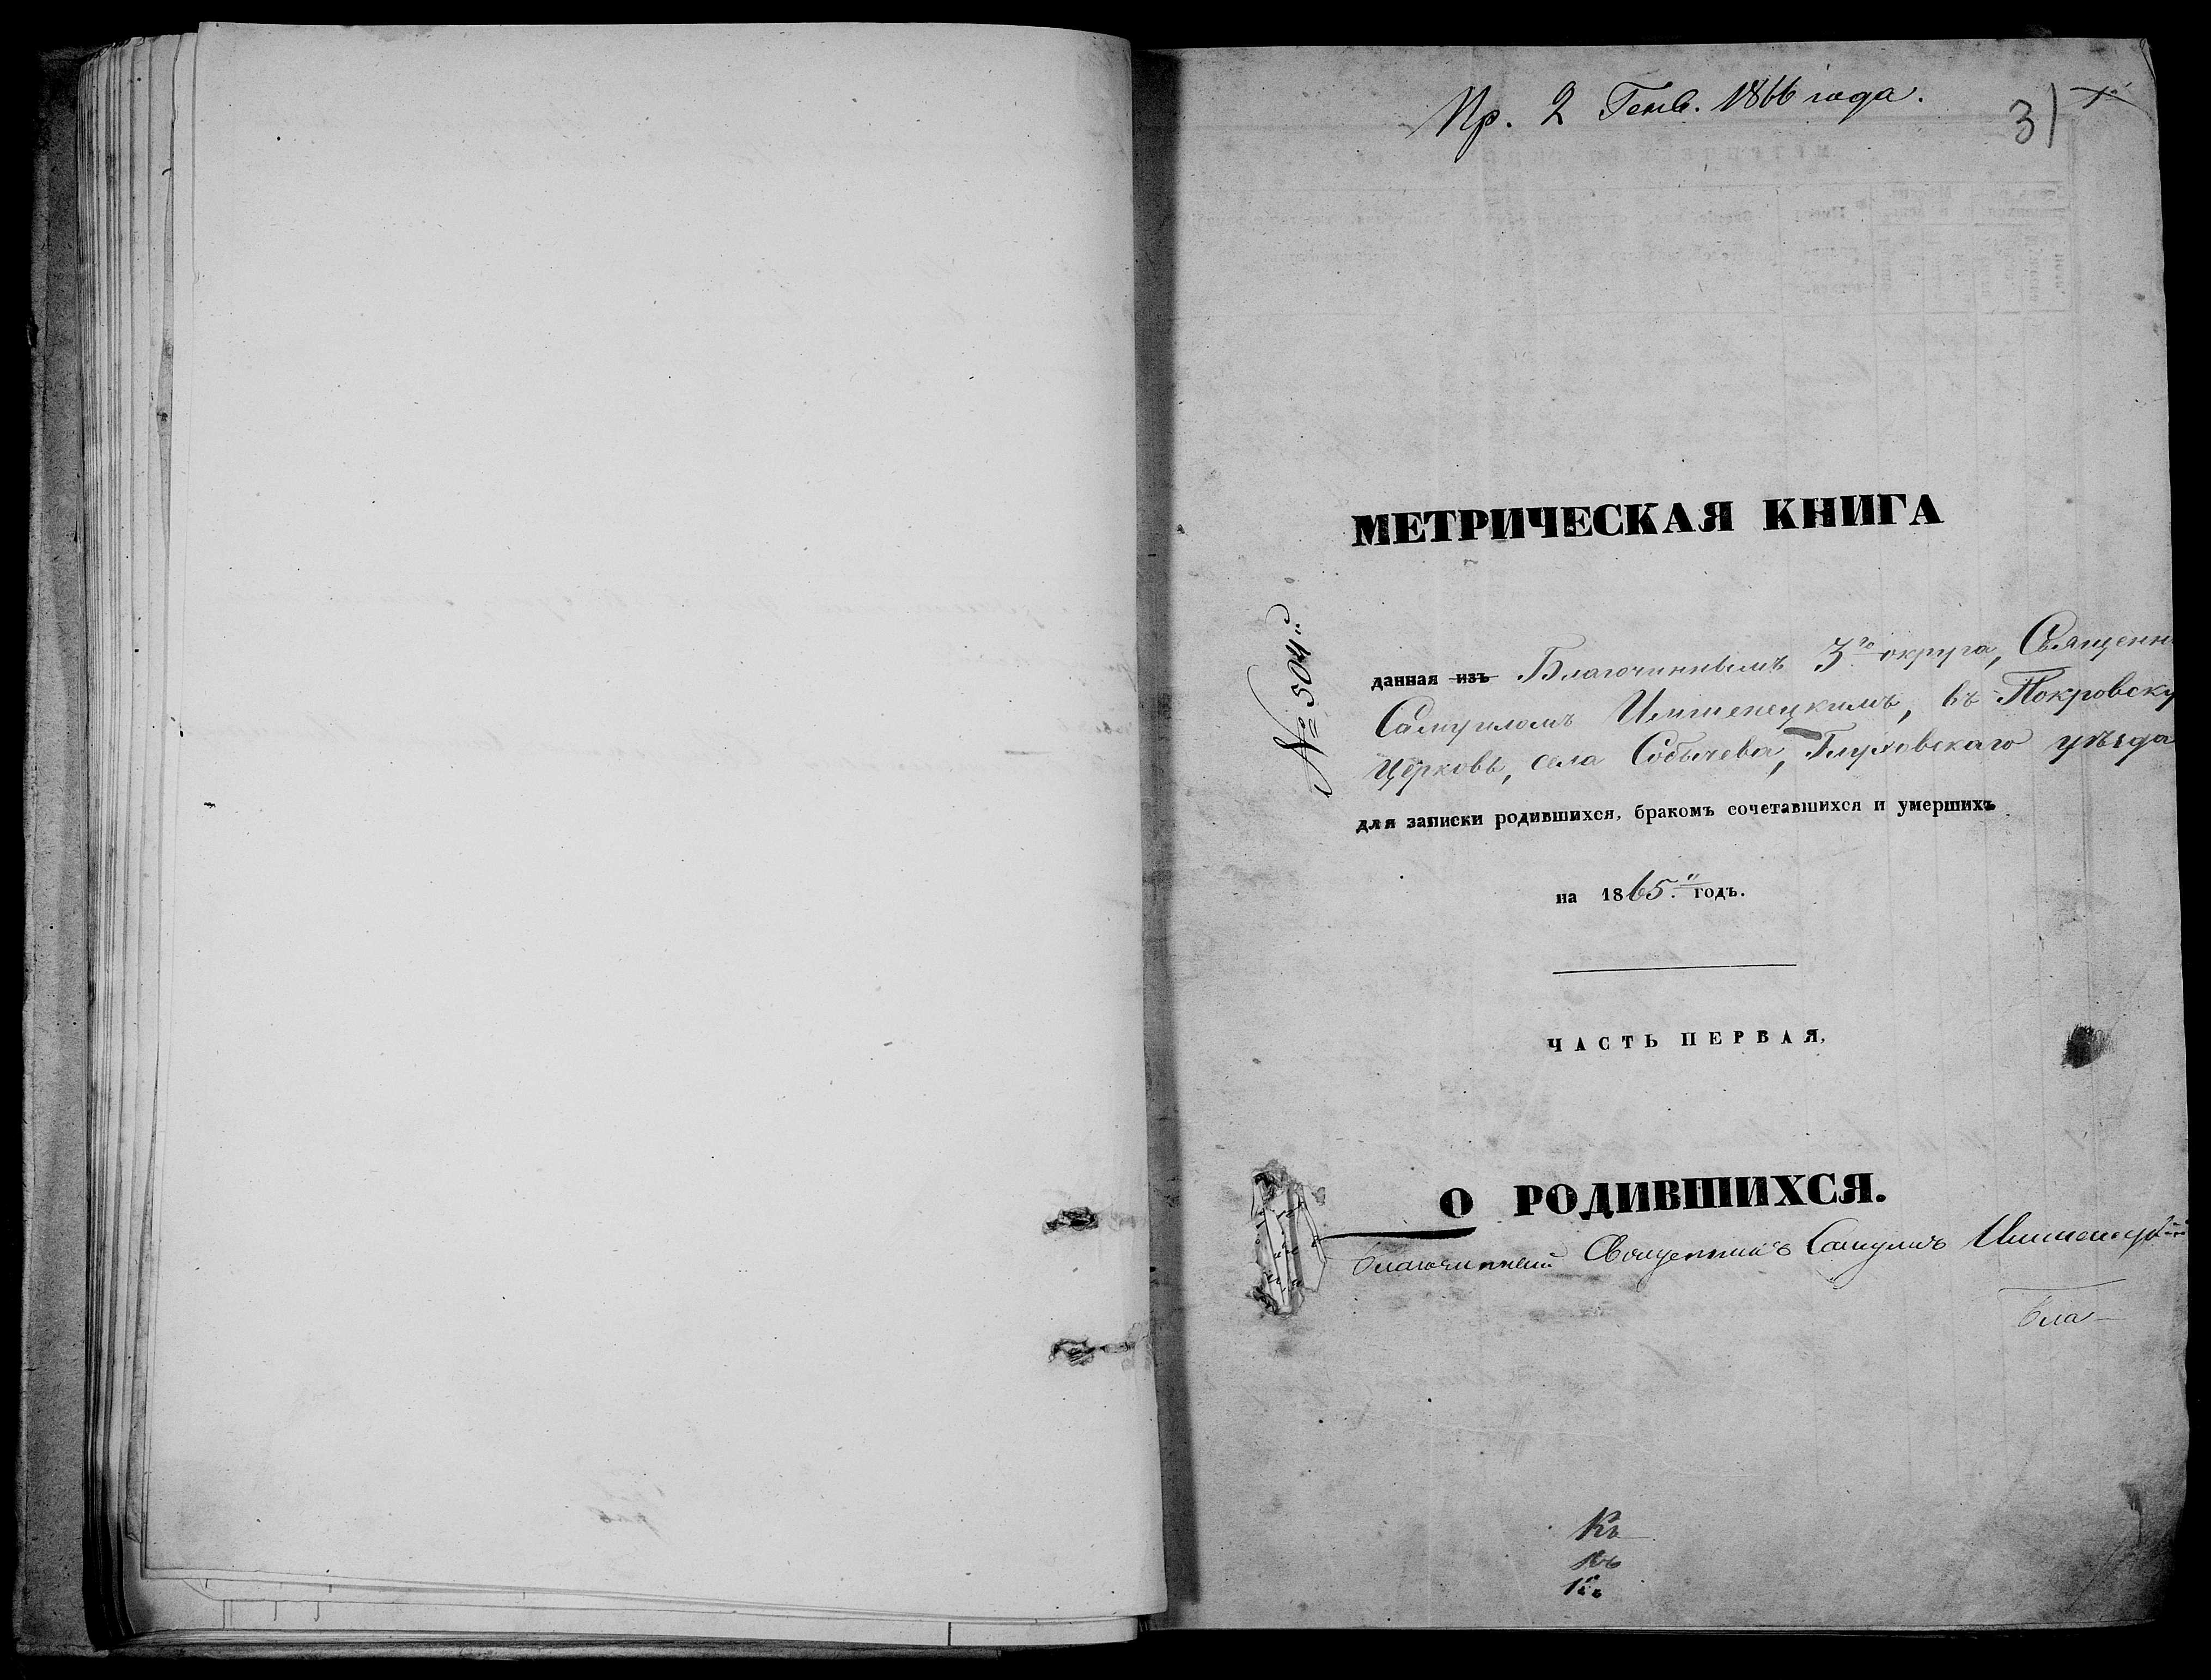 Пр. 2 Генв. 1866 года.
31
МЕТРИЧЕСКАЯ КНИГА
№ 504.
данная изъ Благочиннымъ 3го округа, Священни
Самуиломъ Имшенецкимъ, въ Покровску
Церковь, села Собычева, Глуховскаго уѣзда
для записки родившихся, бракомъ сочетавшихся и умершихъ
на 1865. годъ.
ЧАСТЬ ПЕРВАЯ,
О РОДИВШИХСЯ.
Благочинный Священникъ Самуилъ Имшенецкій
Бла-
Къ
Къ
Къ